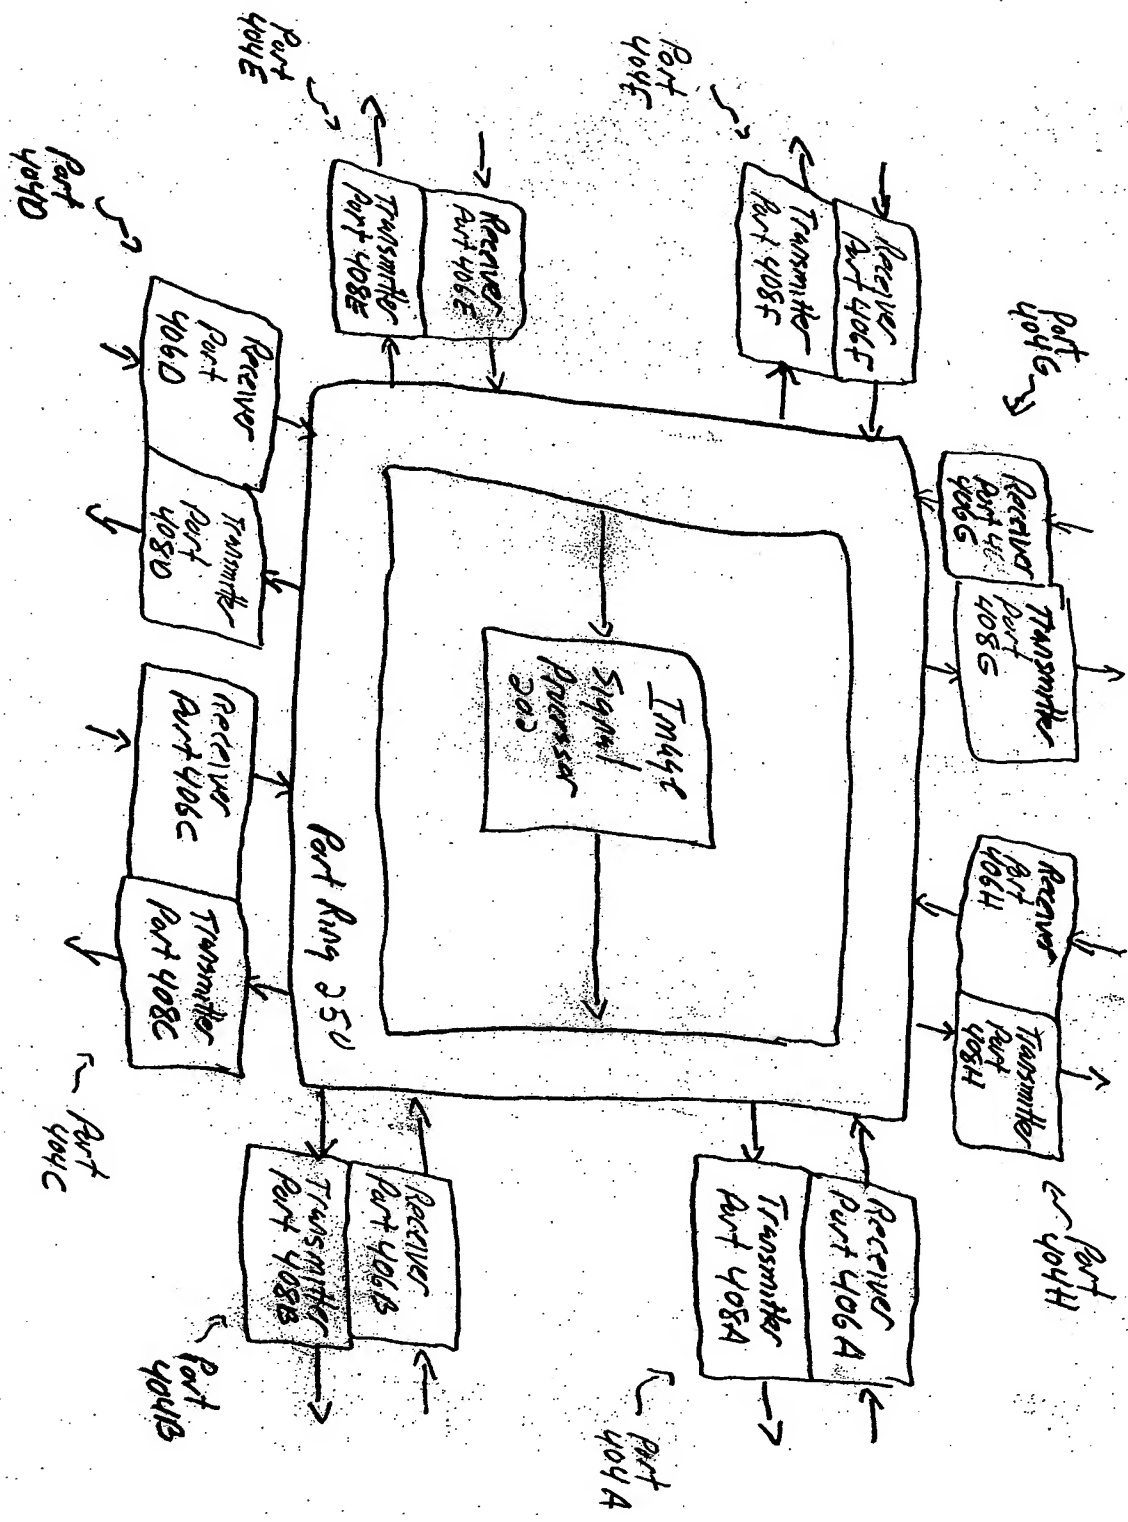 Port
404E
Port
404F
Port
404G
Port
404D
Transmitter
Port 408E
Receiver
Port 406E
Transmitter
Port 408F
Receiver
Port 406F
Receiver
Port
406D
Transmitter
Port
408D
Receiver
Port 40
406G
Transmitter
Port
408G
Image
Signal
Processor
202
Receiver
Port 406C
Transmitter
Port 408C
Port Ring 250
Receiver
Port
406H
Transmitter
Port
408H
Port
404C
Port
404H
Receiver
Port 406B
Transmitter
Port 408B
Receiver
Port 406A
Transmitter
Port 408A
Port
404B
Port
404A